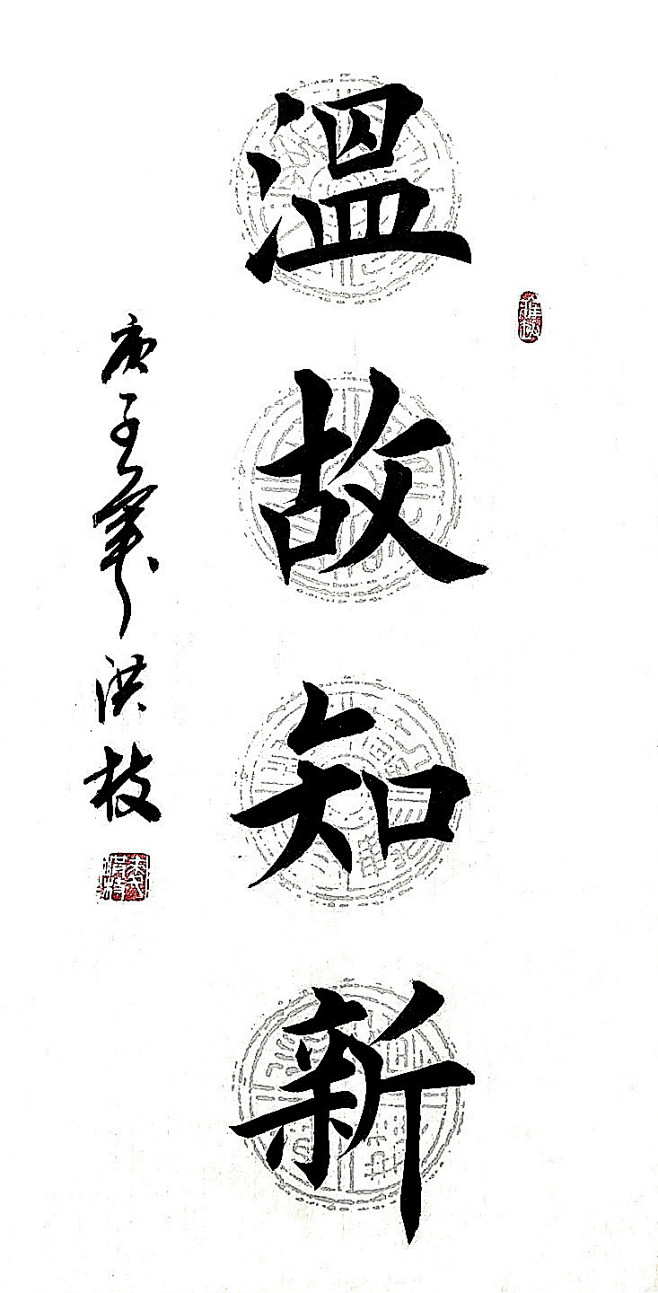 溫故知新
庚子洪枝